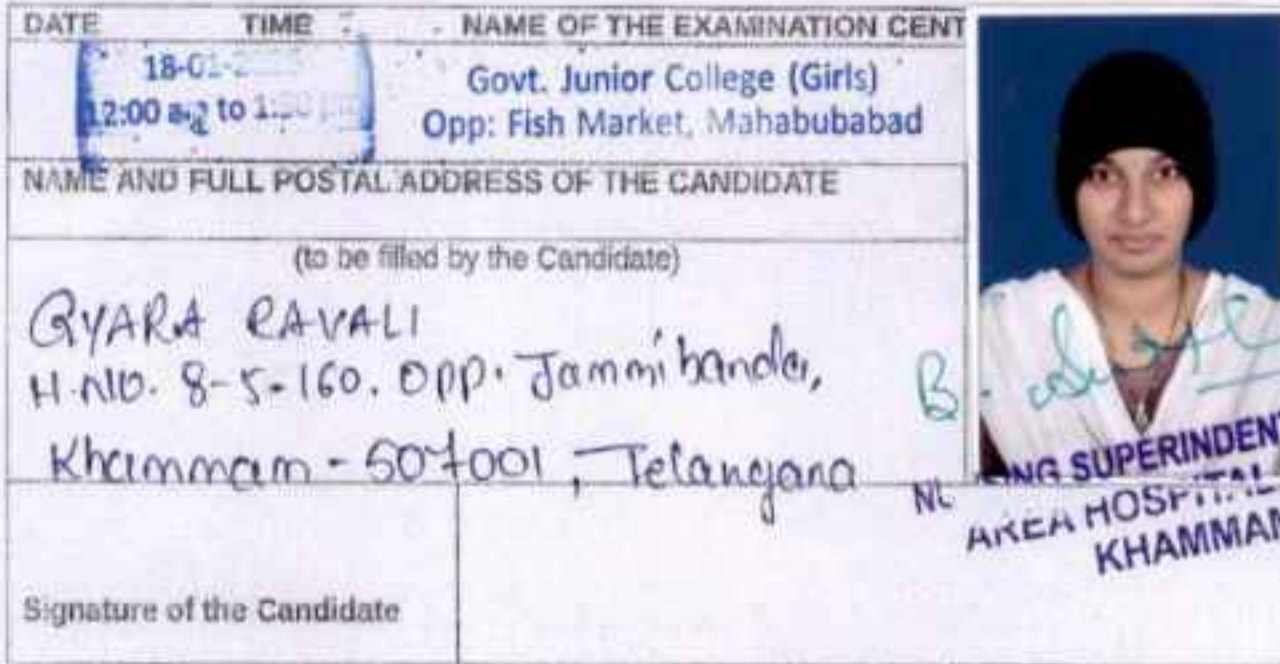 DATE TIME NAME OF THE EXAMINATION CENT
18-01-2
12:00 to
Govt. Junior College (Girls)
Opp: Fish Market, Mahabubabad
NAME AND FULL POSTAL ADDRESS OF THE CANDIDATE
(to be filled by the Candidate)
GYARA RAVALI
H.NO. 8-5-160. Opp. Jammibanda,
Khammam - 507001, Telangana
B.
SUPERINDENT
AREA HOSPITAL
KHAMMAM
Signature of the Candidate